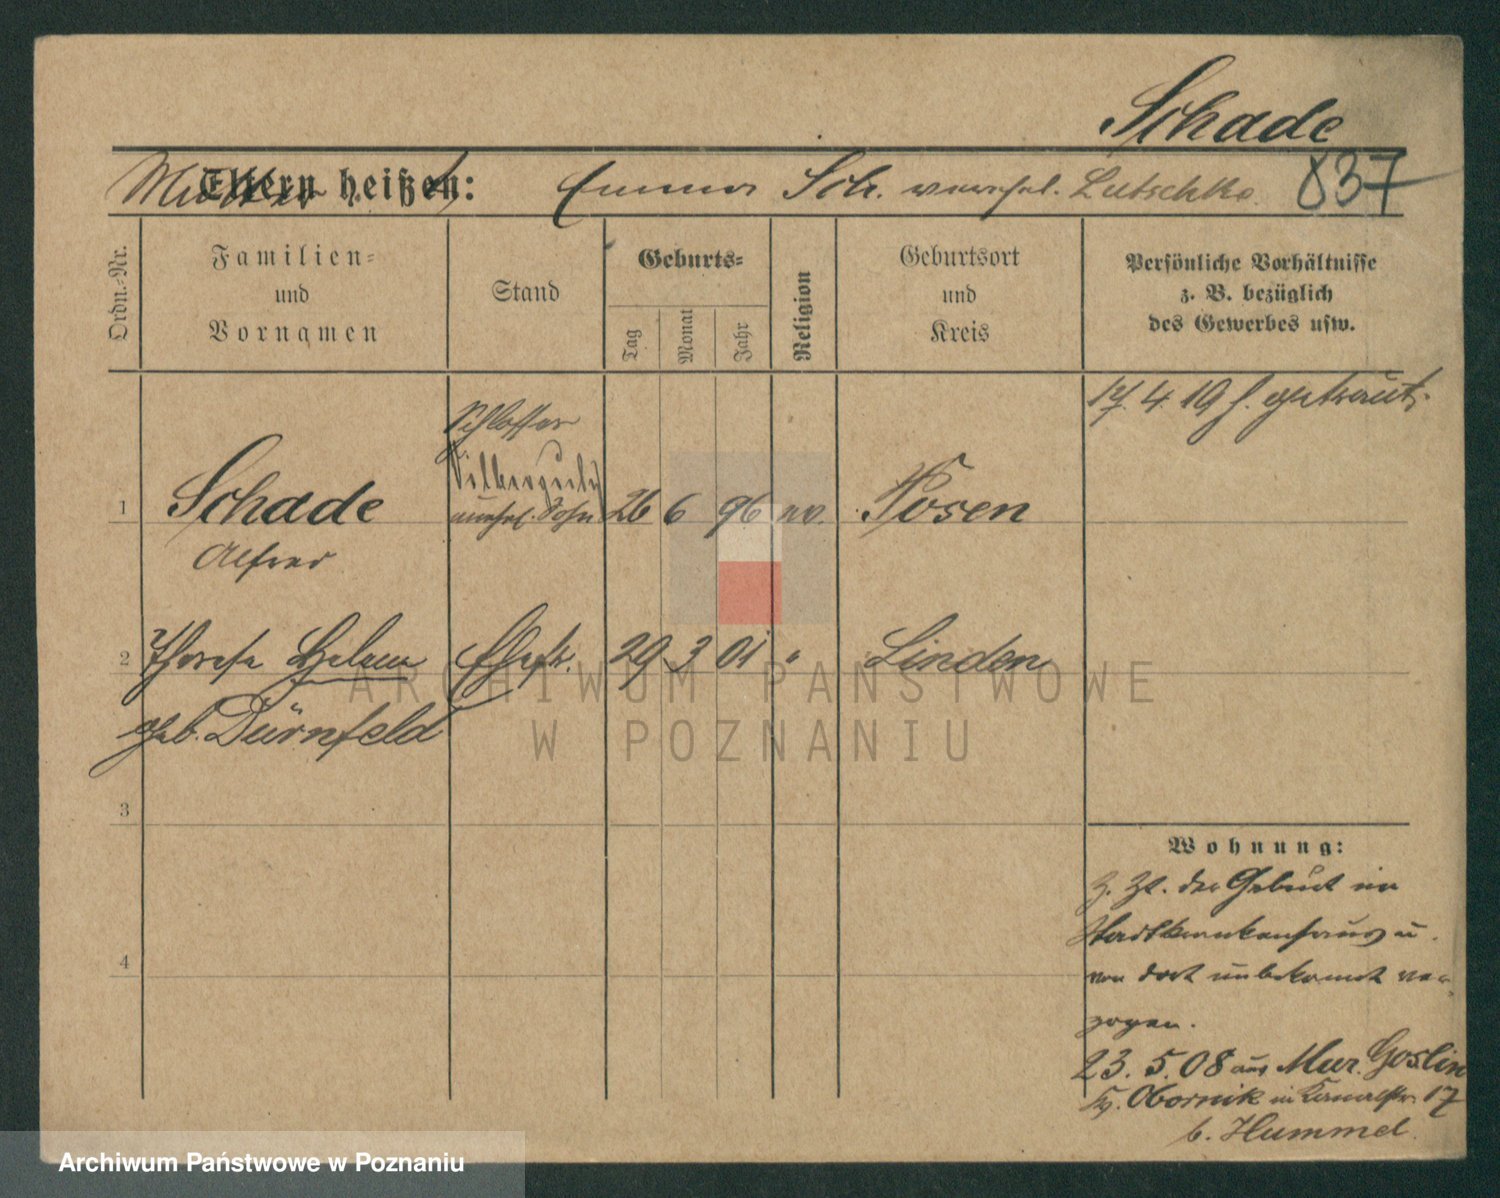 Schade
Mutter Eltern heißen: Emma Sch. verehel. Lutschke 837
Ordn.-Nr.
Familien-
und
Vornamen
Stand
Geburts-
Tag
Monat
Jahr
Religion
Geburtsort
und
Kreis
Persönliche Vorhältnisse
z. B. bezüglich
des Gewerbes usw.
17. 4. 19 h. getraut.
Schlosser
1 Schade unehel. Sohn 26 6 96 ev. Posen
Alfred
2 Therese Helene Ehefr. 29 3 01 " Linden
geb. Dürnfeld
3
4
Wohnung:
z. Zt. der Geburt im
Stadtkrankenhaus u.
von dort unbekannt ver-
zogen.
23. 5. 08 aus Mur. Goslin
Kr. Obornik in Kanalstr. 17
b. Hummel.
ARCHIWUM PAŃSTWOWE
W POZNANIU
Archiwum Państwowe w Poznaniu